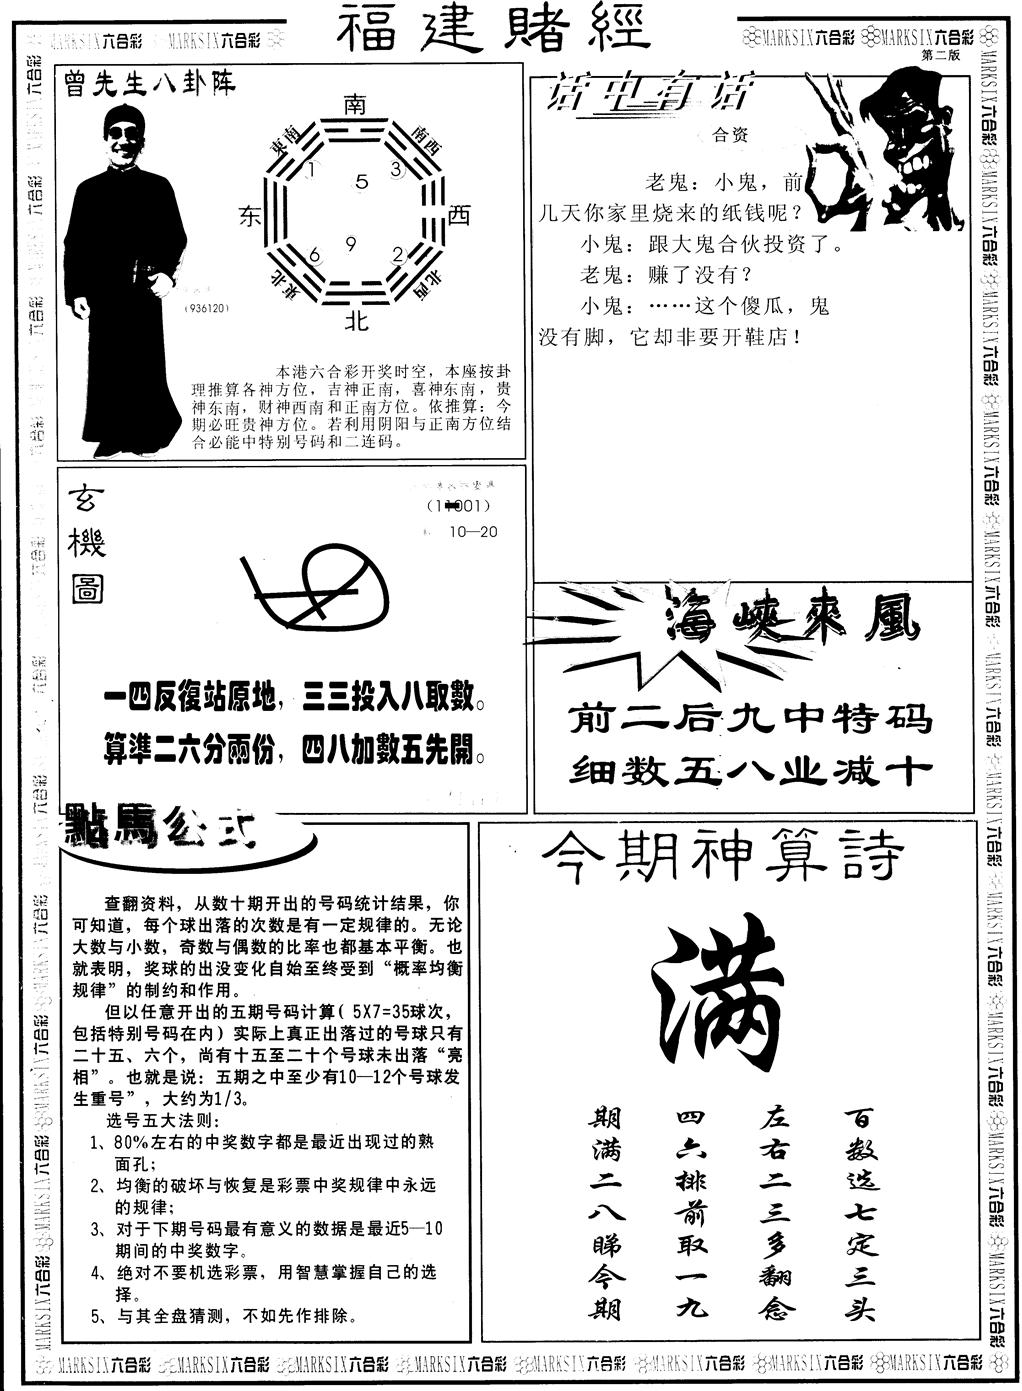 福建賭經
MARKSIX六合彩 MARKSIX六合彩
MARKSIX六合彩 MARKSIX六合彩
第二版
曾先生八卦阵
南
東南
南西
1
5
3
东
西
6
9
2
東北
北西
北
(936120)
本港六合彩开奖时空，本座按卦
理推算各神方位，吉神正南，喜神东南，贵
神东南，财神西南和正南方位。依推算：今
期必旺贵神方位。若利用阴阳与正南方位结
合必能中特别号码和二连码。
话中有话
合资
老鬼：小鬼，前
几天你家里烧来的纸钱呢？
小鬼：跟大鬼合伙投资了。
老鬼：赚了没有？
小鬼：……这个傻瓜，鬼
没有脚，它却非要开鞋店！
玄機圖
10—20
一四反復站原地，三三投入八取數。
算準二六分兩份，四八加數五先開。
海峽來風
前二后九中特码
细数五八业减十
點馬公式
查翻资料，从数十期开出的号码统计结果，你
可知道，每个球出落的次数是有一定规律的。无论
大数与小数，奇数与偶数的比率也都基本平衡。也
就表明，奖球的出没变化自始至终受到“概率均衡
规律”的制约和作用。
但以任意开出的五期号码计算( 5X7=35球次，
包括特别号码在内）实际上真正出落过的号球只有
二十五、六个，尚有十五至二十个号球未出落“亮
相”。也就是说：五期之中至少有10—12个号球发
生重号”，大约为1/3。
选号五大法则：
1、80%左右的中奖数字都是最近出现过的熟
面孔；
2、均衡的破坏与恢复是彩票中奖规律中永远
的规律；
3、对于下期号码最有意义的数据是最近5—10
期间的中奖数字。
4、绝对不要机选彩票，用智慧掌握自己的选
择。
5、与其全盘猜测，不如先作排除。
今期神算詩
满
百数选七定三头
左右二三多翻念
四六排前取一九
期满二八睇今期
MARKSIX六合彩 MARKSIX六合彩 MARKSIX六合彩 MARKSIX六合彩 MARKSIX六合彩 MARKSIX六合彩 MARKSIX六合彩 MARKSIX六合彩